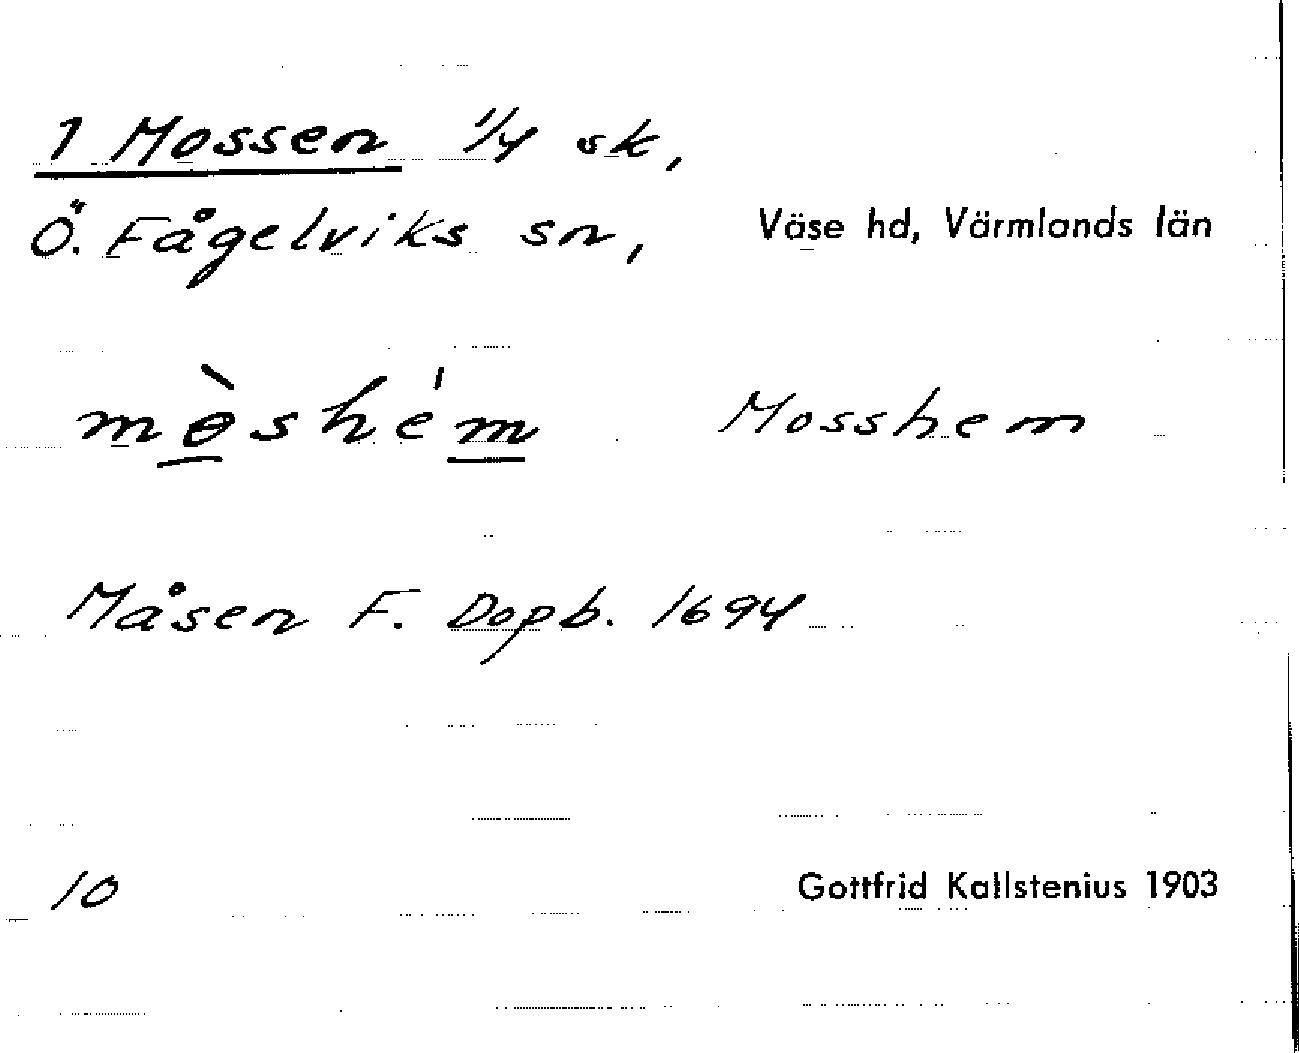 1 Mossen 1/4 sk,
Ö. Fågelviks sn, Väse hd, Värmlands län
mɵ̀shém Mosshem
Måsen F. Dopb. 1694
10 Gottfrid Kallstenius 1903